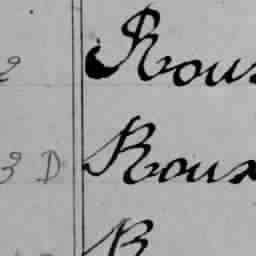 2 Roux
3 D Roux
R